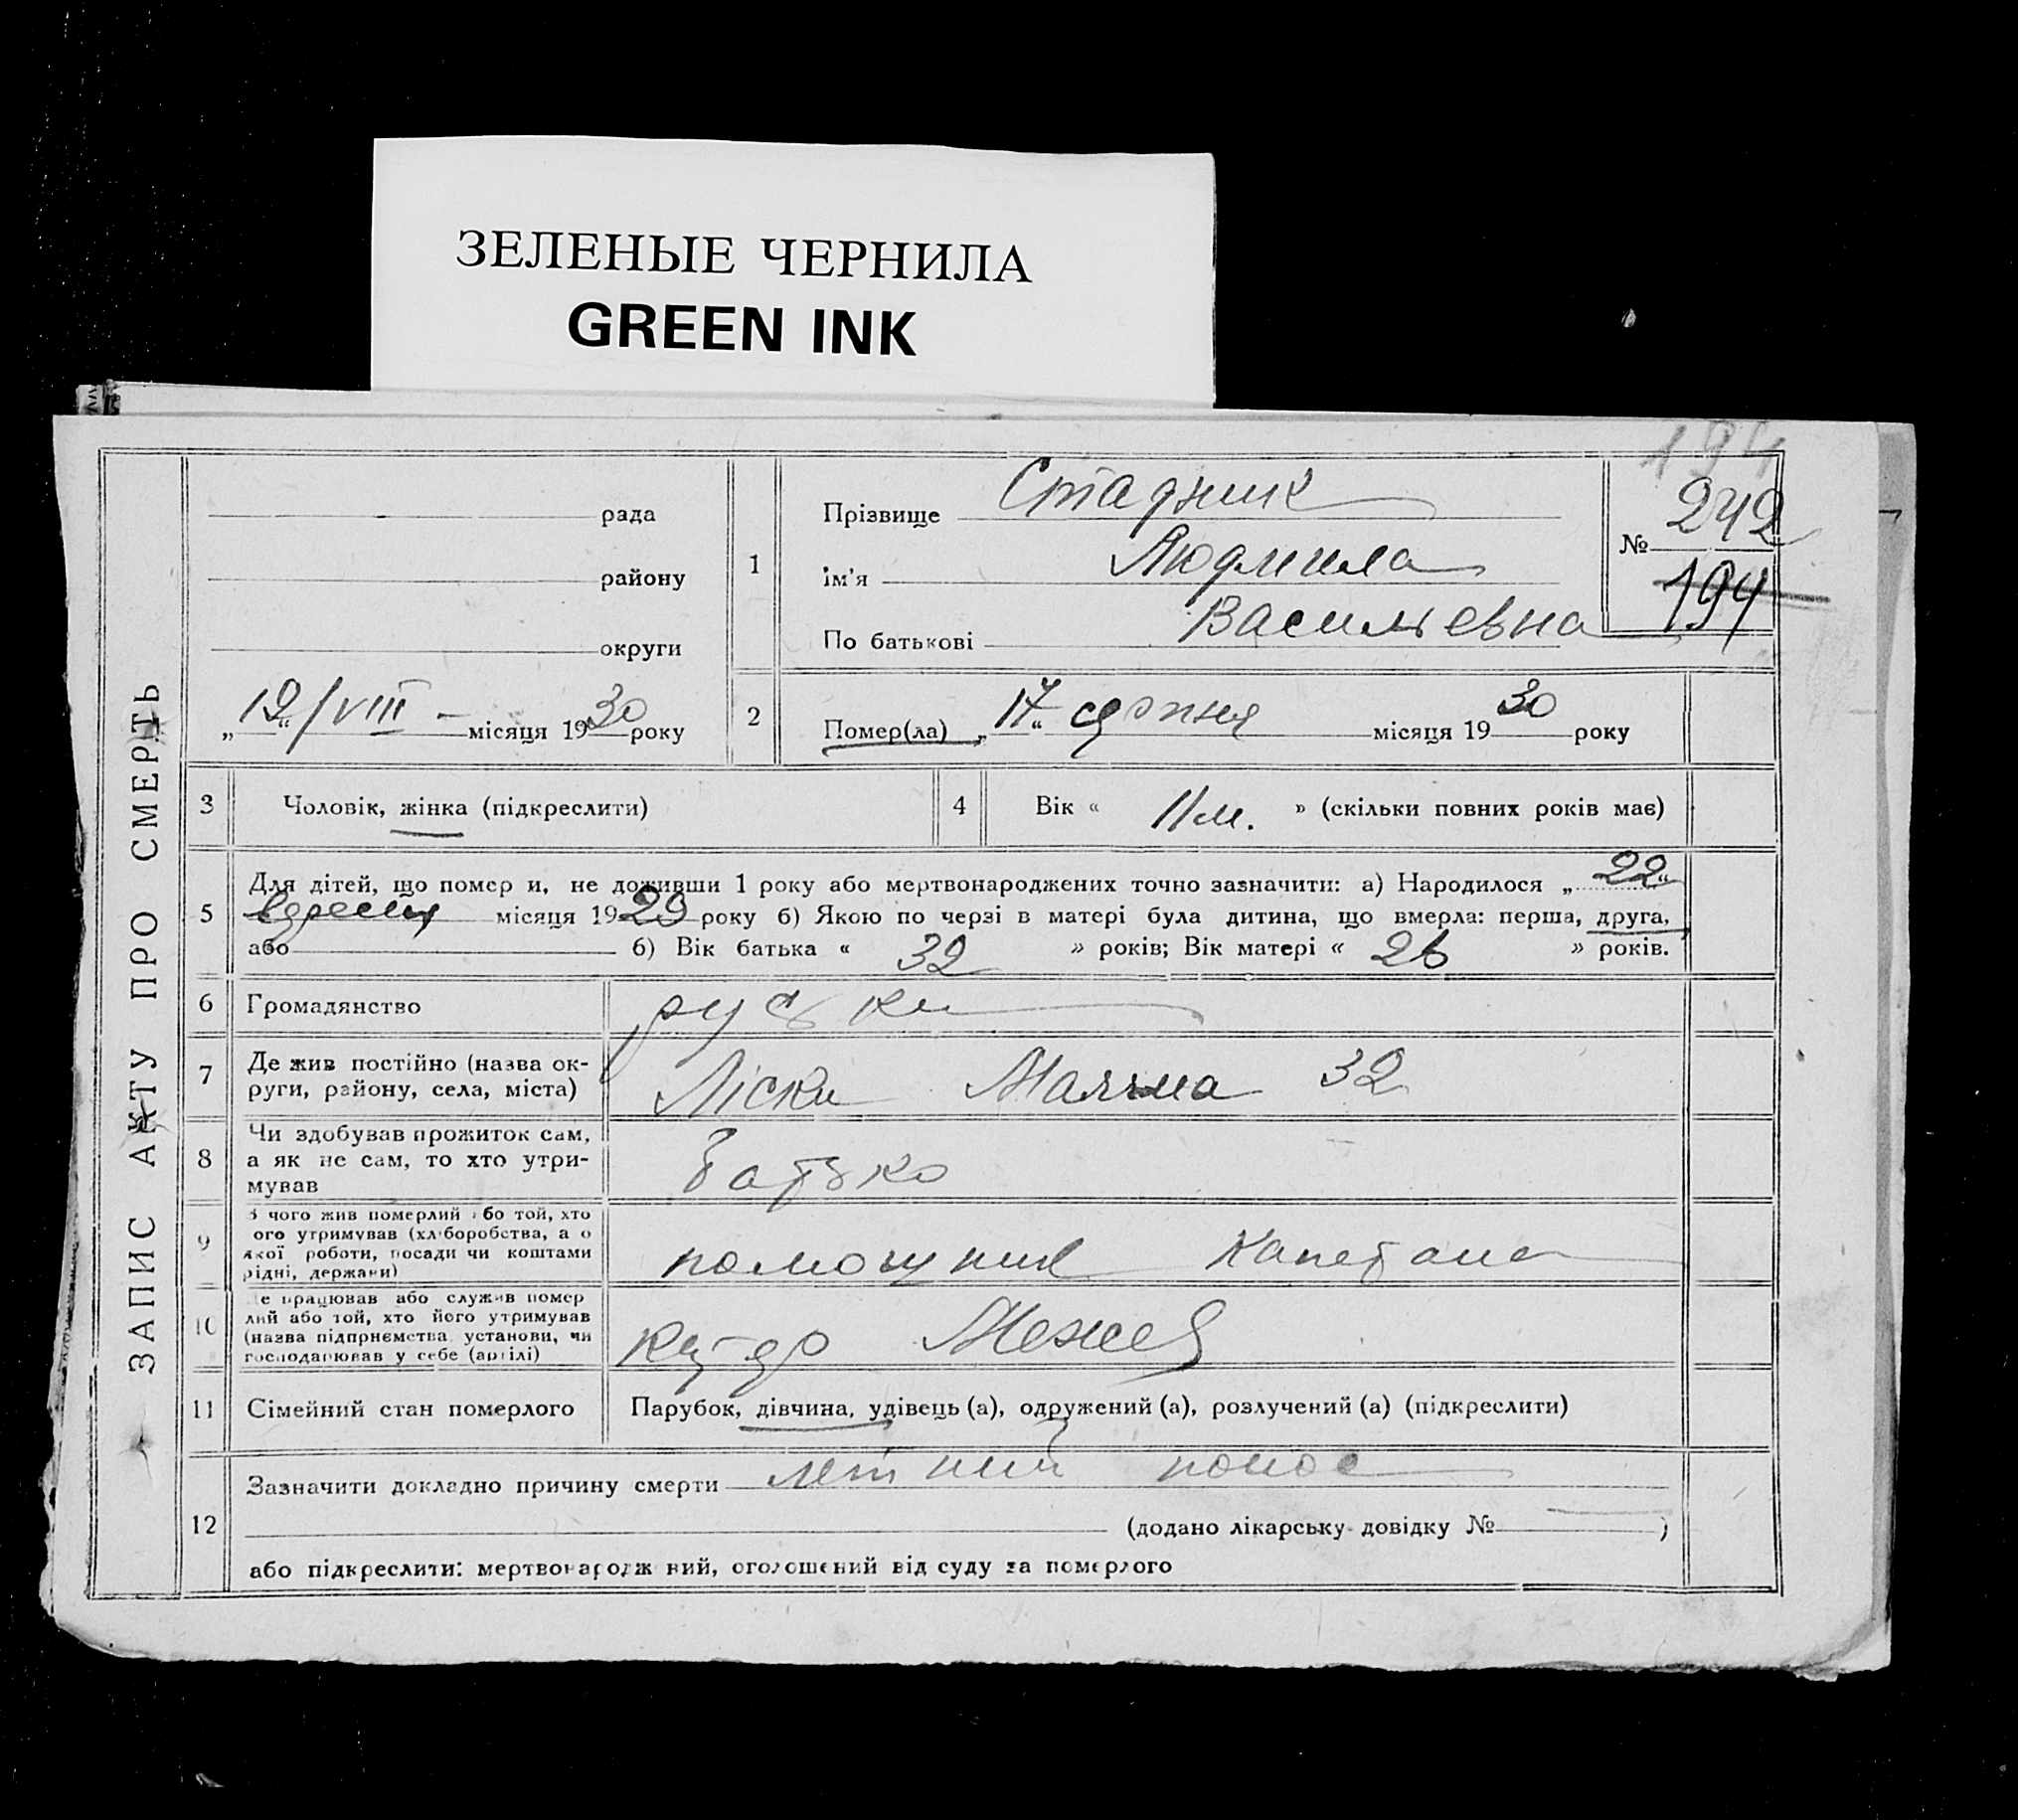 ЗЕЛЕНЫЕ ЧЕРНИЛА
GREEN INK
ЗАПИС АКТУ ПРО СМЕРТЬ
194
рада
району
округи
„19“/VIII – місяця 1930 року
1
Прізвище Стадник
ім'я Людмила
По батькові Васильевна
№ 242
194
2
Помер(ла) „17“ серпня місяця 1930 року
3
Чоловік, жінка (підкреслити)
4
Вік « 11 м. » (скільки повних років має)
5
Для дітей, що помер и, не доживши 1 року або мертвонароджених точно зазначити: а) Народилося „22“
вересня місяця 1929 року б) Якою по черзі в матері була дитина, що вмерла: перша, друга,
або б) Вік батька « 32 » років; Вік матері « 26 » років.
6
Громадянство
руськ
7
Де жив постійно (назва ок-
руги, району, села, міста)
Ліски 32
8
Чи здобував прожиток сам,
а як не сам, то хто утри-
мував
батько
9
З чого жив померлий або той, хто
ого утримував (хліборобства, а о
якої роботи, посади чи коштами
рідні, держави)
помощник капетана
10
е працював або служив помер
лий або той, хто його утримував
(назва підприємства установи, чи
господарював у себе (артілі)
11
Сімейний стан померлого
Парубок, дівчина, удівець (а), одружений (а), розлучений (а) (підкреслити)
12
Зазначити докладно причину смерти летний понос
(додано лікарську довідку № )
або підкреслити: мертвонародж ний, оголошений від суду за померлого